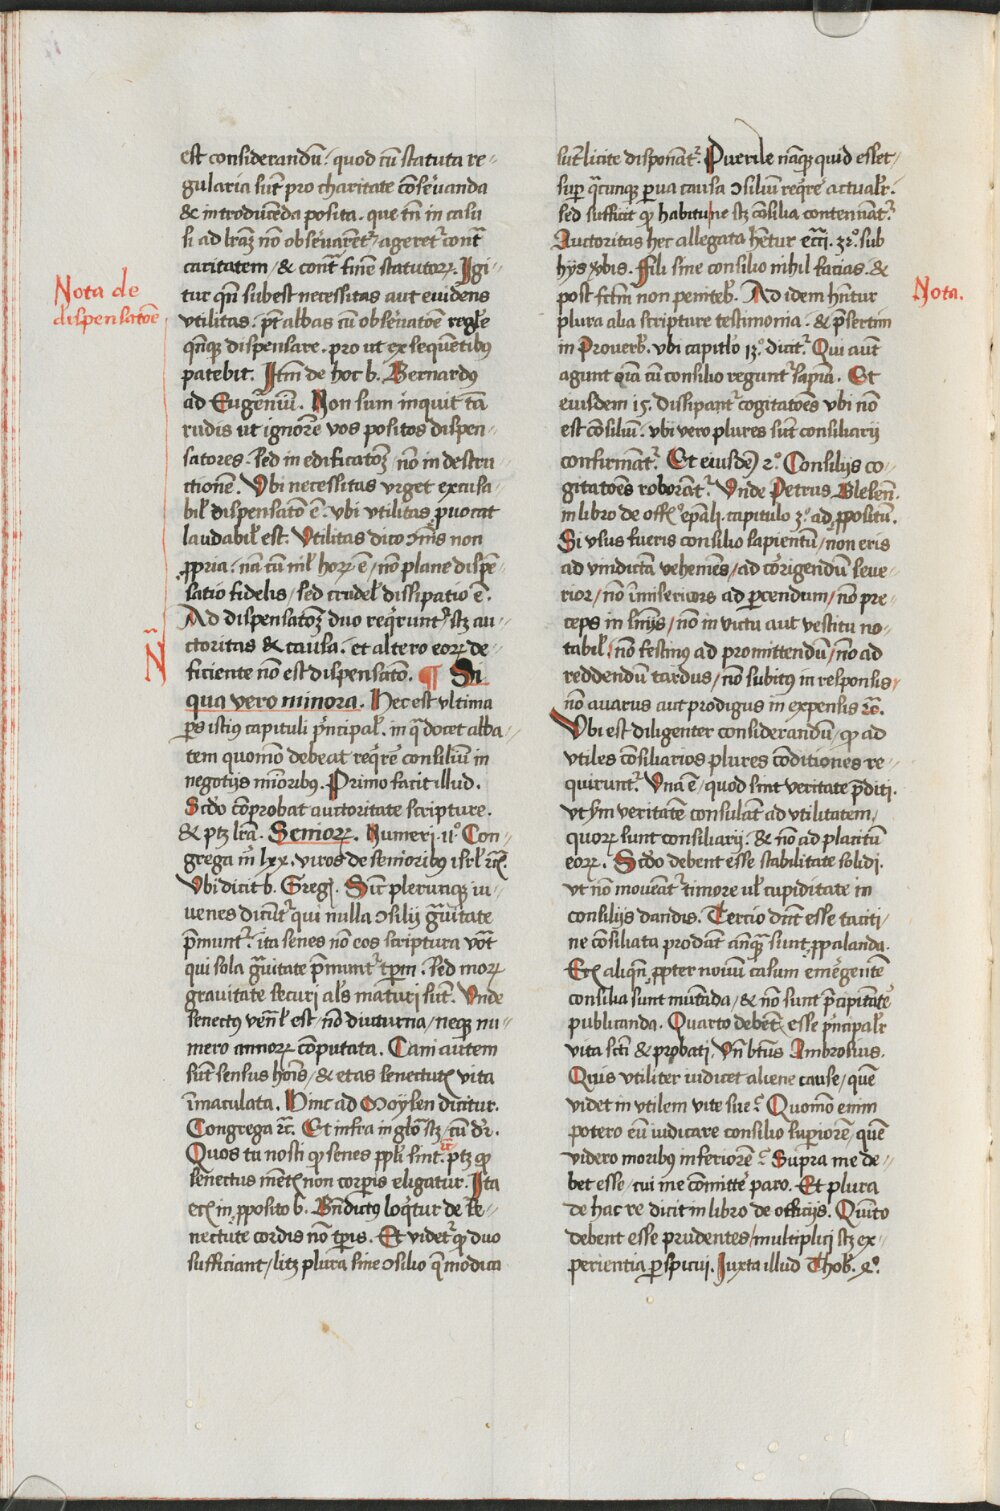 est considerandū· quod cū statuta re⸗
gularia sūt pro charitate cōseruanda
& introducēda posita· que tn̄ in casu
si ad lr̄aꝫ nō obseruarēt᷑, ageret᷑ cont̄
caritatem, & cont̄ finē statutoꝝ· Igi⸗
tur qn̄ subest necessitas aut euidens
Nota de
dispensatōe
vtilitas· pt̄ abbas cū obseruatōe regl̄e
qn̄qꝫ dispensare· pro ut ex sequētibꝯ
patebit· Itm̄ de hoc b· Bernardꝯ
ad Eugeniū· Non sum inquit tā
rudis ut ignōre vos positos dispen⸗
satores· sed in edificatōꝫ nō in destru⸗
ctionē· Vbi necessitas vrget excusa⸗
bil̄ dispensatō ē· vbi vtilitas ꝓuocat
laudabil̄ est· Vtilitas dico ꝯmīs non
ꝓpria· nā cū nil̄ hoꝝ ē, nō plane dispē⸗
satio fidelis, sed crudel̄ dissipatio ē·
Ad dispensatōꝫ duo reqͥrunt᷑ stꝫ au⸗
ctoritas & causa· et altero eoꝝ de⸗
N̄
ficiente nō est dispensatō· ¶ Si
qua vero minora· Hec est vltima
ꝑs istiꝯ capituli pͥncipal̄· in qͣ docet abba⸗
tem quomō debeat reqͥre consiliū in
negotijs miōribꝯ· Primo facit illud·
Scd̄o cōprobat auctoritate scripture·
& ptꝫ lrā· Senioꝝ· Numeri ·11° Con⸗
grega m̄ lxx· viros de senioribꝯ isrl̄ ⁊c̄·
Vbi dicit b· Gregꝭ· Sic̄ plerūqꝫ iu⸗
uenes dicūt᷑ qui nulla ꝯsilij gͣuitate
p̄munt᷑· ita senes nō eos scriptura vōt
qui sola gͣuitate p̄munt᷑ tꝑm· sed moꝝ
grauitate securi al̄s maturi sūt· Vnde
senectꝯ ven̄l̄ est, nō diuturna, neqꝫ nu⸗
mero annoꝝ cōputata· Cani autem
sūt sensus hoīs, & etas senectutꝭ vita
īmaculata· Hinc ad Moysen dicitur·
Congrega ⁊c̄· Et infra in glō stꝫ, cū dr̄·
Quos tu nosti qꝫ senes ppl̄i sint ⁊c̄ ptꝫ qꝫ
senectus mētꝭ non corꝑis eligatur· Ita
etꝭ in ꝓposito b· Bn̄dictꝯ loqͥtur de se⸗
nectute cordis nō tꝑis· Et videt᷑ qꝫ duo
sufficiant, licꝫ plura sine ꝯsilio qͣ modica
sūt licite disponāt᷑· Puerile nāqꝫ quid esset,
suꝑ qͣcunqꝫ ꝑua causa ꝯsiliū reqͥre actual̄r·
sed sufficit qꝫ habitune stꝫ cōsilia contennāt᷑·
Auctoritas hec allegata hētur eccī· 32° sub
hijs vb̄is· Fili sine consilio nihil facias· &
Nota·
post fctm̄ non penitēb̄· Ad idem hn̄tur
plura alia scripture testimonia· & p̄sertim
in Prouerb̄· vbi capitl̄o 13° dicit᷑· Qui aūt
agunt oīa cū consilio regunt᷑ sapīa· Et
eiusdem 15· dissipant᷑ cogitatōes vbi nō
est cōsiliū· vbi vero plures sūt consiliarij
confirmāt᷑· Et eiusdē) 2° Consilijs co⸗
gitatōes roborāt᷑· Vnde Petrus Blesen̄·
in libro de offꝭ° ep̄ali· capitulo 3° ad ꝓpositū·
Si vsus fueris consilio sapientū, non eris
ad vindictā vehemēs, ad corrigendū seue⸗
rior, nō īmisericors ad parcendum, nō pre⸗
ceps in sn̄ijs, nō in victu aut vestitu no⸗
tabil̄, nō festinꝯ ad promittendū, nō ad
reddendū tardus, nō subitꝯ in responsis,
nō auarus aut prodigus in expensis ⁊c̄·
Vbi est diligenter considerandū, qꝫ ad
vtiles cōsiliarios plures cōditiones re⸗
quirunt᷑· Vna ē, quod sint veritate p̄diti·
vt sm̄ veritatē consulāt ad vtilitatem,
quoꝝ sunt consiliarij· & nō ad placitū
eoꝝ· Scd̄o debent esse stabilitate solidi·
vt nō moueāt᷑ timore ul̄ cupiditate in
consilijs dandis· Tercio dn̄t esse taciti,
ne cōsiliata prodāt anqͣꝫ sunt ꝓpalanda·
Etꝭ aliqn̄ ꝓpter nouū casum emergentē
consilia sunt mutāda, & nō sunt p̄cipitātē
publicanda· Quarto debēt esse pͥncipal̄r
vita scti & probati· Vn̄ btūs Ambrosius·
Quis vtiliter iudicet aliene cause, quē
videt in vtilem vite sue? Quomō enim
potero eū iudicare consilio superiorē, quē
videro moribus inferiorē? Supra me de⸗
bet esse, cui me cōmitte paro· Et plura
de hac re dicit in libro de officijs· Quīto
debent esse prudentes, multiplici stꝫ ex⸗
perientia ꝑspicui· Iuxta illud Thob̄· 4°